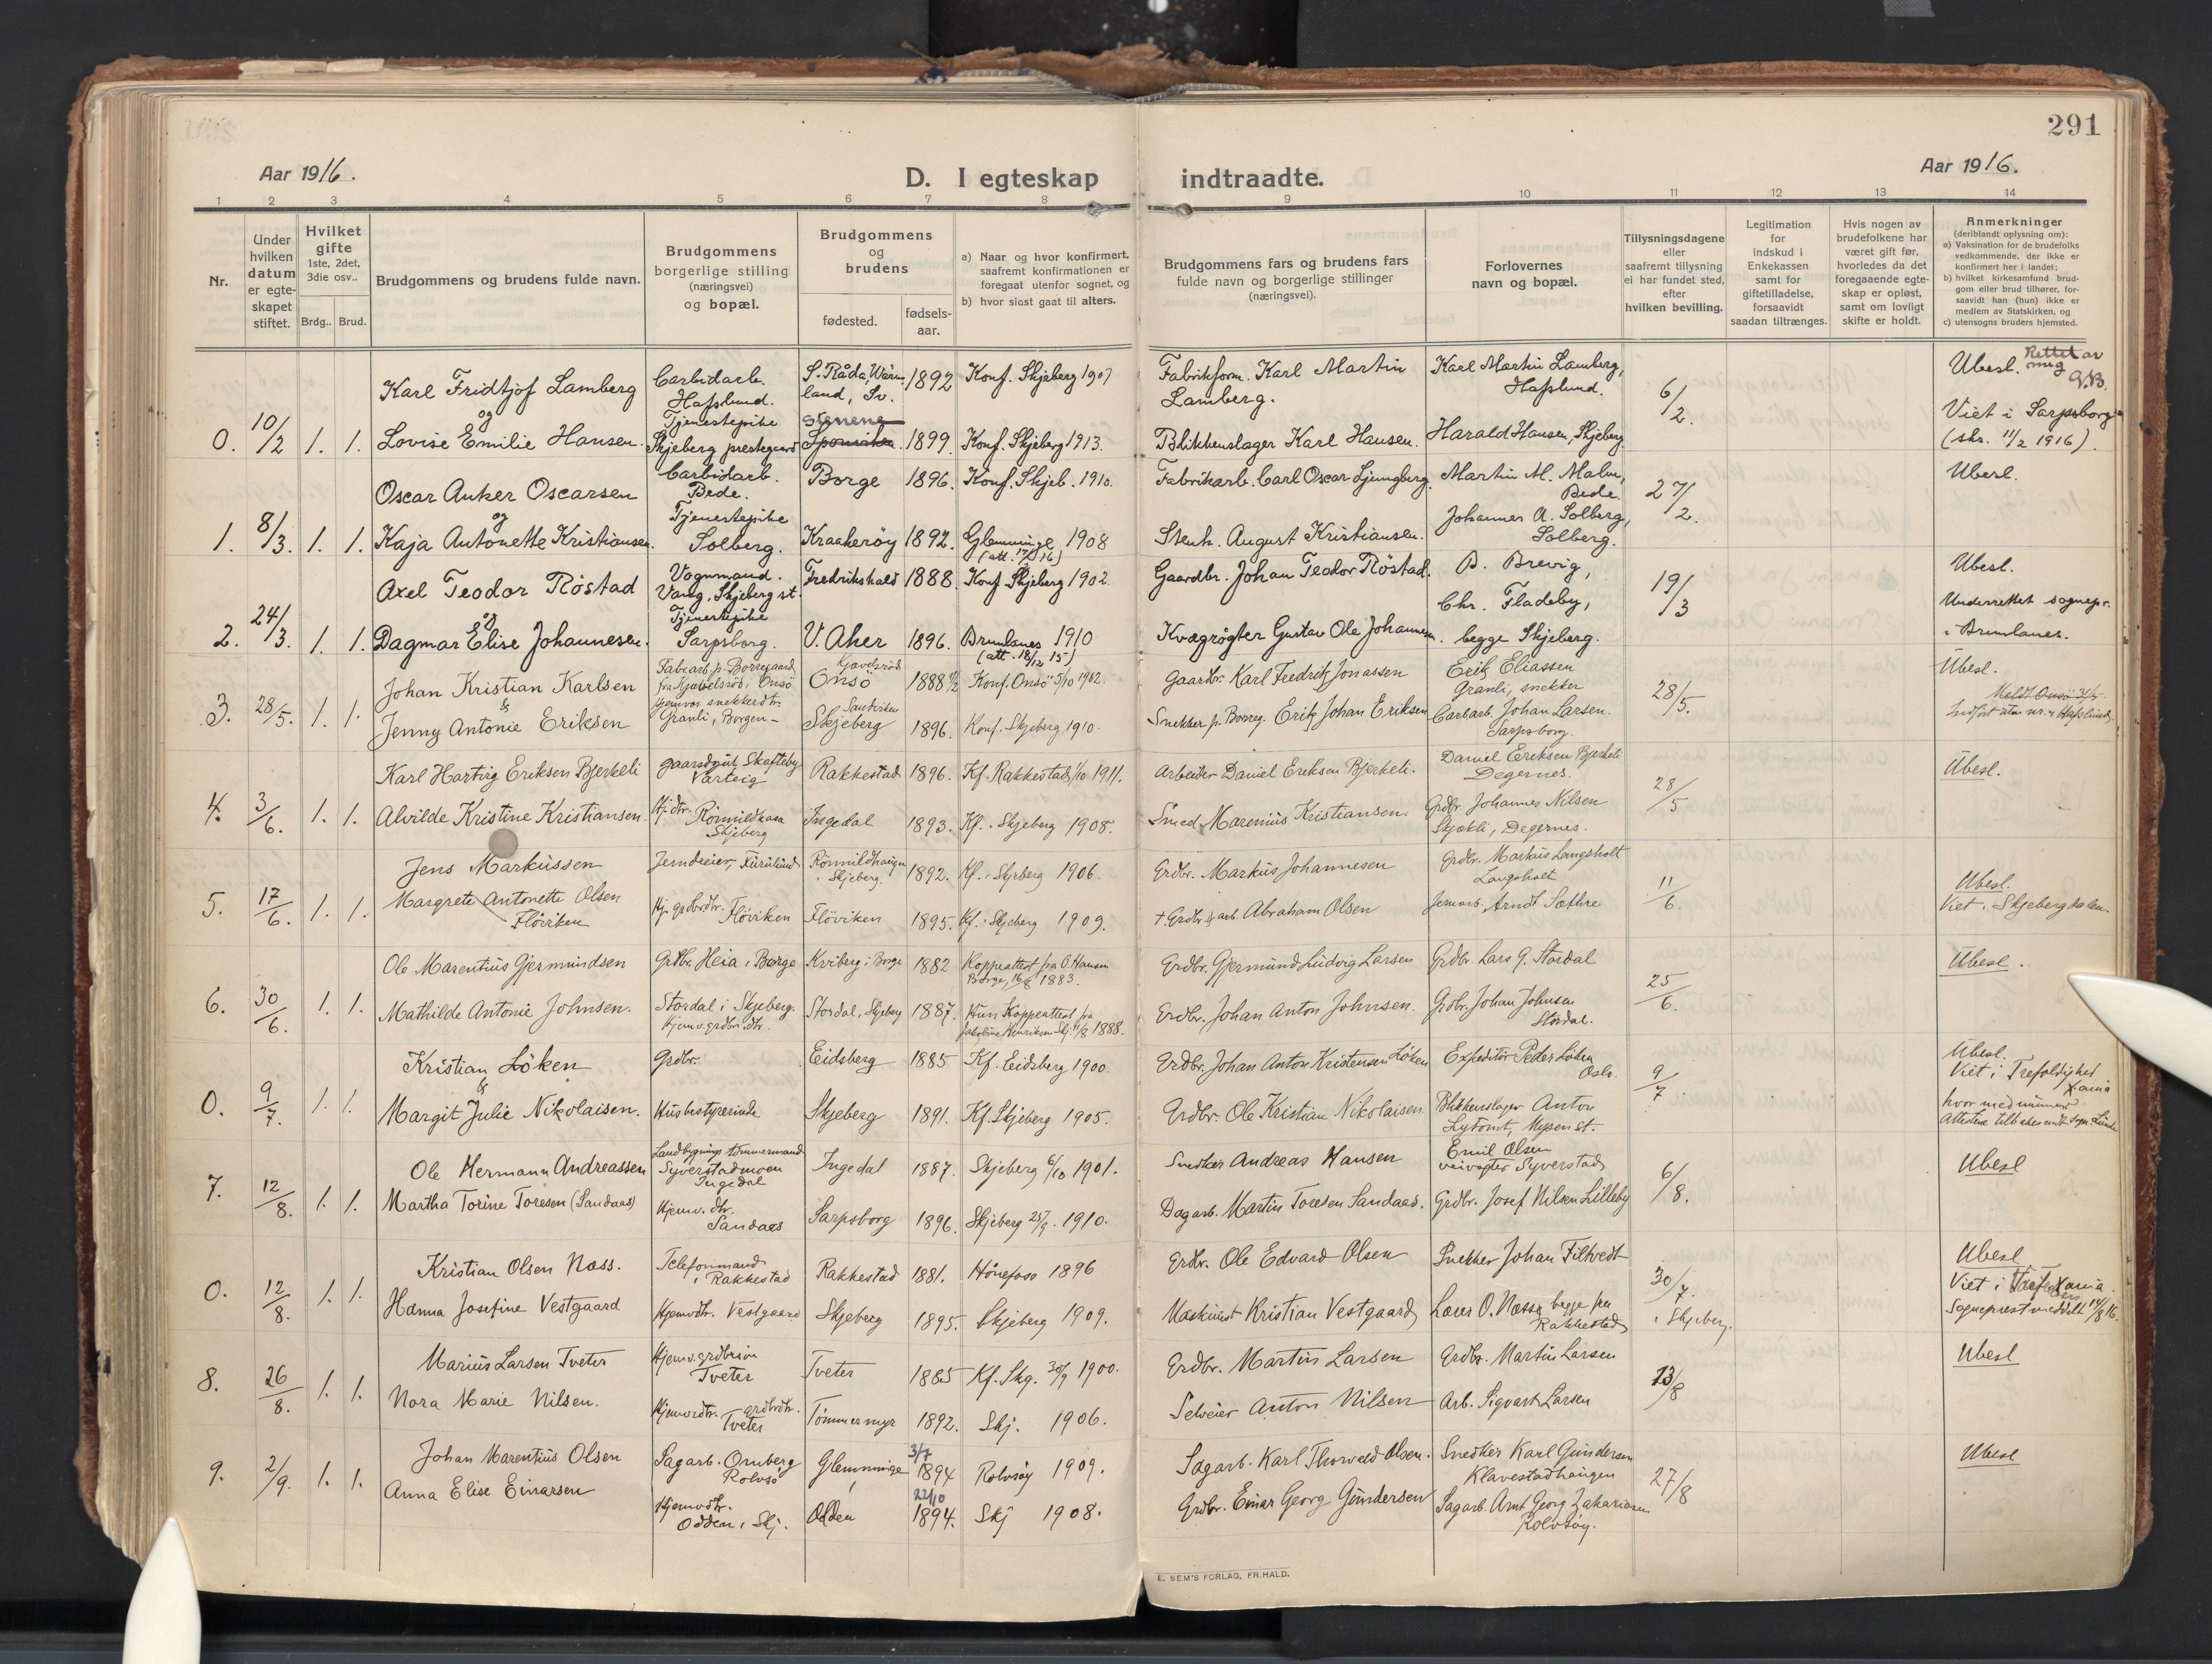 291
Aar 1916.
Aar 1916.
D. I egteskap indtraadte.
1 2 3 4 5 6 7 8 9 10 11 12 13 14
Nr.
Under hvilken datum er egteskapet stiftet.
Hvilket gifte 1ste, 2det, 3die osv..
Brdg.. Brud.
Brudgommens og brudens fulde navn.
Brudgommens borgerlige stilling (næringsvei) og bopæl.
Brudgommens og brudens
fødested.
fødsels-aar.
a) Naar og hvor konfirmert, saafremt konfirmationen er foregaat utenfor sognet, og
b) hvor sidst gaat til alters.
Brudgommens fars og brudens fars fulde navn og borgerlige stillinger (næringsvei).
Forlovernes navn og bopæl.
Tillysningsdagene eller saafremt tillysning ei har fundet sted, efter hvilken bevilling.
Legitimation for indskud i Enkekassen samt for giftetilladelse, forsaavidt saadan tiltrænges.
Hvis nogen av brudefolkene har været gift før, hvorledes da det foregaaende egteskap er opløst, samt om lovligt skifte er holdt.
Anmerkninger (deriblandt oplysning om):
a) Vaksination for de brudefolks vedkommende, der ikke er konfirmert her i landet;
b) hvilket kirkesamfund brudgom eller brud tilhører, forsaavidt han (hun) ikke er medlem av Statskirken, og
c) utensogns bruders hjemsted.
Karl Fridtjof Lamberg Carbidarb. Hafslund. S. Råda, Wärmland, Sv. 1892 Konf. Skjeberg 1907 Fabrikform. Karl Martin Lamberg. Karl Martin Lamberg, Hafslund. 6/2. Ubesl. Rettet av mig
og
0. 10/2 1. 1. Lovise Emilie Hansen. Tjenestepike Skjeberg prestegaard 1899. Konf. Skjeberg 1913. Blikkenslager Karl Hansen. Harald Hansen, Skjeberg Viet i Sarpsborg (skr. 11/2 1916).
Oscar Anker Oscarsen Carbidarb. Bede. Borge 1896. Konf. Skjeb. 1910. Fabrikarb. Carl Oscar Ljungberg. Martin M. Malm, Bede. 27/2. Ubesl.
og
1. 8/3. 1. 1. Kaja Antonette Kristiansen. Tjenestepike Solberg. Kraakerøy 1892. Glemminge 1908 Stenh. August Kristiansen. Johannes A. Solberg, Solberg.
Axel Teodor Röstad Vognmand. Vang, Skjeberg st. Fredrikshald 1888. Konf. Skjeberg 1902 Gaardbr. Johan Teodor Röstad. B. Brevig, 19/3 Ubesl.
og
2. 24/3. 1. 1. Dagmar Elise Johannesen. Tjenestepike Sarpsborg. V. Aker 1896. Brunlanes 1910 (att. 18/12 15) Kvægrøgter Gustav Ole Johannesen. Chr. Fladeby, begge Skjeberg. Underrettet sognepr. i Brunlanes.
Johan Kristian Karlsen Onsö 1888 Konf. Onsö 5/10 1902. Gaardbr. Karl Fredrik Jonassen Erik Eliassen Granli, snekker 28/5. Ubesl.
&
3. 28/5. 1. 1. Jenny Antonie Eriksen Hjemvær. snekkerdtr. Granli, Borgen Sandviken Skjeberg 1896. Konf. Skjeberg 1910. Snekker p. Borreg. Erik Johan Eriksen Carbarb. Johan Larsen. Sarpsborg.
Karl Hartvig Eriksen Bjerkeli gaardsgut Skofteby Varteig Rakkestad 1896. Kf. Rakkestad 1/10 1911. Arbeider Daniel Eriksen Bjerkeli. Daniel Eriksen Bjerkeli Degernes. 28/5 Ubesl.
4. 3/6. 1. 1. Alvilde Kristine Kristiansen. Skjeberg Ingedal 1893. Kf. i Skjeberg 1908. Smed Marenius Kristiansen. Grdbr. Johannes Nilsen Skjækli, Degernes.
Jens Markussen Jerndreier, Furulund Rönnildhaugen i Skjeberg. 1892. Kf. i Skjeberg 1906. Grdbr. Markus Johannesen Grdbr. Markus Langsholt Langsholt 11/6. Ubesl.
5. 17/6. 1. 1. Margrete Antonette Olsen Flöviken Hj. grdbrdtr. Flöviken Flöviken 1895. Kf. i Skjeberg 1909. † Grdbr. & arb. Abraham Olsen Jernarb. Arndt Sæthre Viet i Skjebergdalen.
Ole Marentius Gjermundsen Grdbr. Heia i Borge Kviberg i Borge 1882 Koppeattest fra O. Hansen Borge, 16/8 1883. Grdbr. Gjermund Ludvig Larsen Grdbr. Lars G. Stordal 25/6. Ubesl.
6. 30/6. 1. 1. Mathilde Antonie Johnsen. Stordal i Skjeberg. Hjemv. grdbr. dtr. Stordal, Skjeberg 1887. Kun Koppeattest fra Jakobine Henriksen Skj. 1888. Grdbr. Johan Anton Johnsen. Grdbr. Johan Johnsen Stordal.
Kristian Löken Grdbr. Eidsberg 1885 Kf. Eidsberg 1900. Grdbr. Johan Anton Kristensen Löken Expeditör Peder Löken Oslo. 9/7 Ubesl.
&
0. 9/7. 1. 1. Margit Julie Nikolaisen. Husbestyrerinde Skjeberg 1891. Kf. Skjeberg 1905. Grdbr. Ole Kristian Nikolaisen. Blikkenslager Anton Mysen st. Viet i Trefoldighet Xania hvor med nummer
Ole Hermann Andreassen Landbygnings tömmermand Syverstadmoen Ingedal Ingedal 1887. Skjeberg 6/10 1901. Snedker Andreas Hansen Emil Olsen veivogter Syverstad 6/8. Ubesl
7. 12/8. 1. 1. Martha Torine Toresen (Sandaas) Hjemv. dtr. Sandaas Sarpsborg 1896. Skjeberg 25/9. 1910. Dagarb. Martin Toresen Sandaas. Grdbr. Josef Nilsen Lilleby
Kristian Olsen Næss. Telefonmand i Rakkestad Rakkestad 1881. Hönefoss 1896 Grdbr. Ole Edvard Olsen Snekker Johan Filtvedt 30/7. i Skjeberg. Ubesl
0. 12/8. 1. 1. Hanna Josefine Vestgaard Hjemvdtr. Vestgaard Skjeberg 1895. Skjeberg 1909. Maskinist Kristian Vestgaard Lærer O. Næss, begge fra Rakkestad Viet i Xania. Sogneprest meddelt 14/8 16.
Marius Larsen Tveter Hjemv. grdbrsøn Tveter Tveter 1885 Kf. Skj. 30/9 1900. Grdbr. Martin Larsen Grdbr. Martin Larsen 13/8 Ubesl
8. 26/8. 1. 1. Nora Marie Nilsen. Hjemvdtr. grdbrdtr. Tveter Tömmermyr 1892. Skj. 1906. Selveier Anton Nilsen Arb. Sigvart Larsen
Johan Marentius Olsen Sagarb. Omberg Rolvsö Glemminge 3/7 1894 Rolvsøy 1909. Sagarb. Karl Thorvald Olsen. Snedker Karl Gundersen Klavestadhaugen 27/8 Ubesl
9. 2/9. 1. 1. Anna Elise Einarsen Hjemvdtr. Odden, Skj. Odden 22/10 1894. Skj 1908. Grdbr. Einar Georg Gundersen Sagarb. Arnt Georg Zakariasen Rolvsøy.
E. SEM'S FORLAG, FR.HALD.